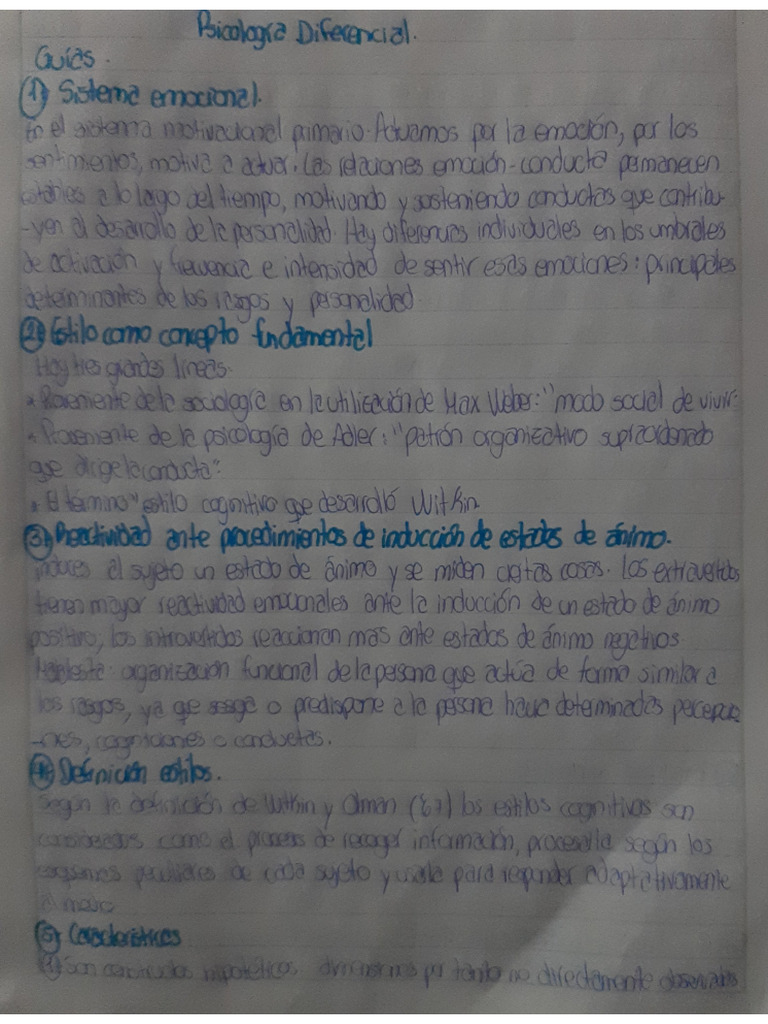 Psicología Diferencial.
Guías.
① Sistema emocional.
En el sistema motivacional primario. Actuamos por la emoción, por los
sentimientos, motiva a actuar. Las relaciones emoción-conducta permanecen
estables a lo largo del tiempo, motivando y sosteniendo conductas que contribu-
-yen al desarrollo de la personalidad. Hay diferencias individuales en los umbrales
de activación y frecuencia e intensidad de sentir esas emociones: principales
determinantes de los rasgos y personalidad.
② Estilo como concepto fundamental
Hay tres grandes líneas.
* Proveniente de la sociología en la utilización de Max Weber: "modo social de vivir"
* Proveniente de la psicología de Adler: "patrón organizativo supraordenado
que dirige la conducta".
* El término "estilo cognitivo que desarrolló Witkin
③ Reactividad ante procedimientos de inducción de estados de ánimo.
induces al sujeto un estado de ánimo y se miden ciertas cosas. Los extravertidos
tienen mayor reactividad emocionales ante la inducción de un estado de ánimo
positivo, los introvertidos reaccionan mas ante estados de ánimo negativos.
organización funcional de la persona que actúa de forma similar a
los rasgos, ya que sesga o predispone a la persona hacia determinadas percepcio
-nes, cogniciones o conductas.
④ Definición estilos.
Según la definición de Witkin y (67) los estilos cognitivos son
considerados como el proceso de recoger información, procesarla según los
esquemas peculiares de cada sujeto y usarla para responder adaptativamente
al medio
⑤ Características
Son constructos hipotéticos, por tanto no directamente observables